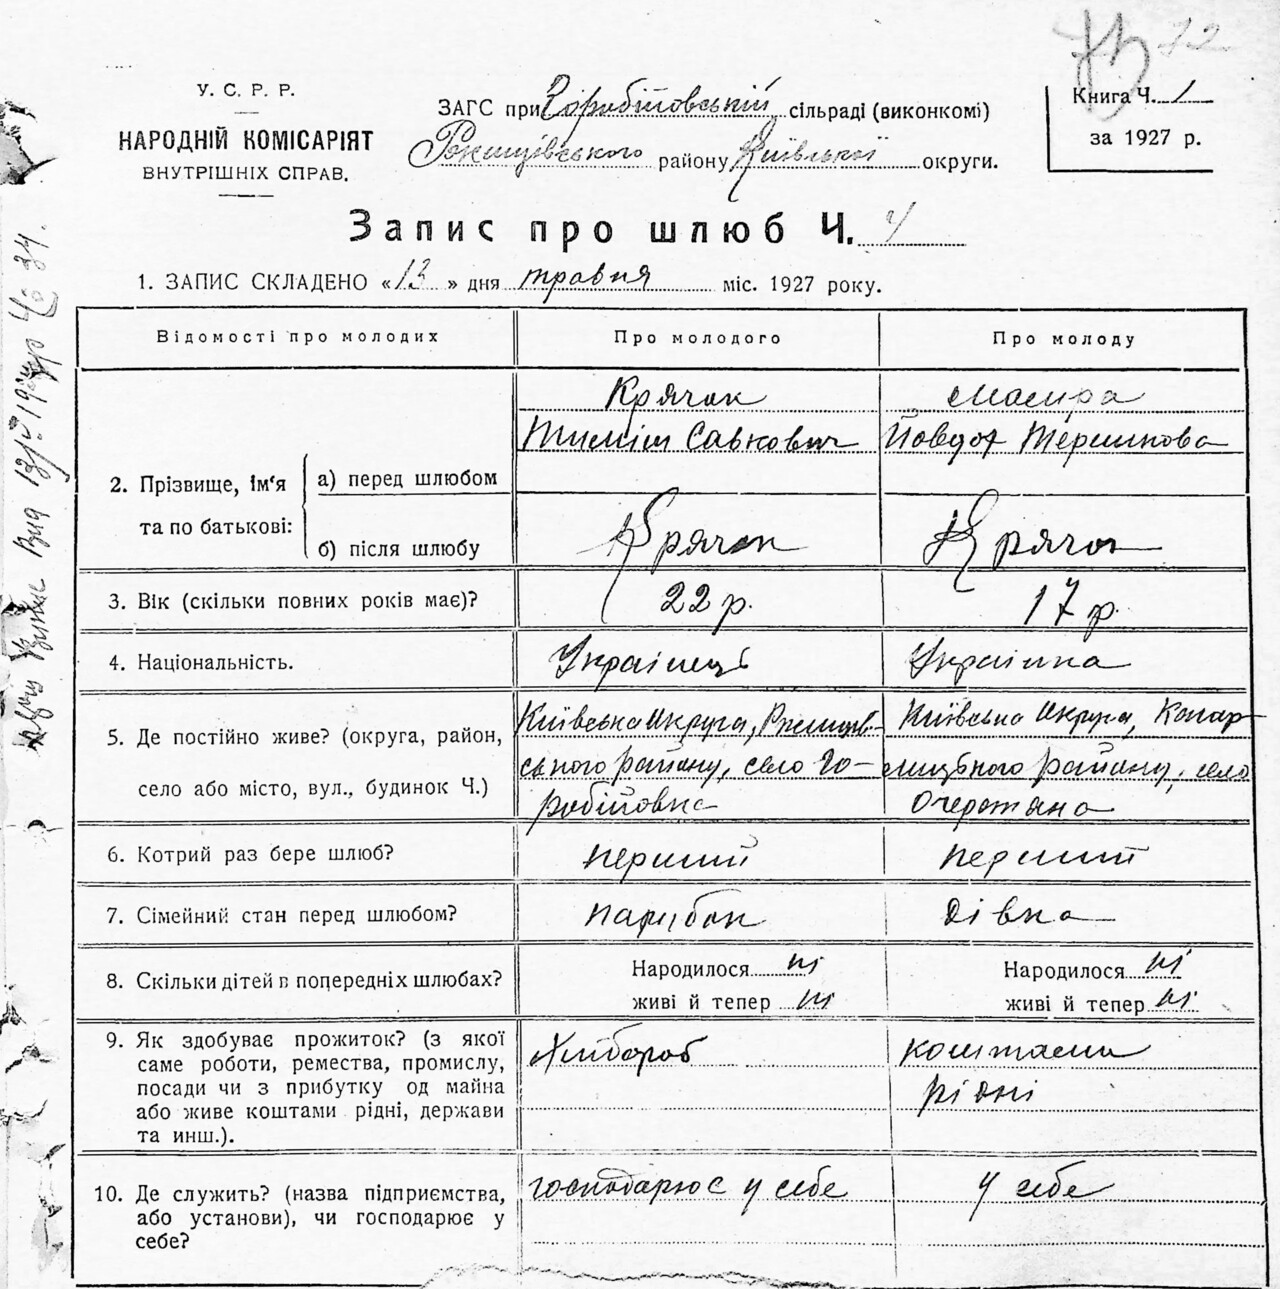 72
У. С. Р. Р.
НАРОДНІЙ КОМІСАРІЯТ
ВНУТРІШНІХ СПРАВ.
ЗАГС при Горобіївській сільраді (виконкомі)
Ржищівського району Київської округи.
Книга Ч. 1
за 1927 р.
Запис про шлюб Ч. 4
1. ЗАПИС СКЛАДЕНО «13» дня травня міс. 1927 року.
Відомості про молодих
Про молодого
Про молоду
2. Прізвище, ім'я та по батькові:
а) перед шлюбом
Крячок
Тиміш Савкович
Йовдох
б) після шлюбу
Крячок
Крячок
3. Вік (скільки повних років має)?
22 р.
17 р.
4. Національність.
Українець
Українка
5. Де постійно живе? (округа, район,
село або місто, вул., будинок Ч.)
Київська округа, Ржищів-
ського району, село Го-
робіївка
Київська округа, Кагар-
лицького району, село
Очеретяна
6. Котрий раз бере шлюб?
перший
перший
7. Сімейний стан перед шлюбом?
парубок
дівка
8. Скільки дітей в попередніх шлюбах?
Народилося ні
живі й тепер ні
Народилося ні
живі й тепер ні
9. Як здобуває прожиток? (з якої
саме роботи, ремества, промислу,
посади чи з прибутку од майна
або живе коштами рідні, держави
та инш.).
Хлібороб
коштами
рідні
10. Де служить? (назва підприємства,
або установи), чи господарює у
себе?
господарює у себе
у себе